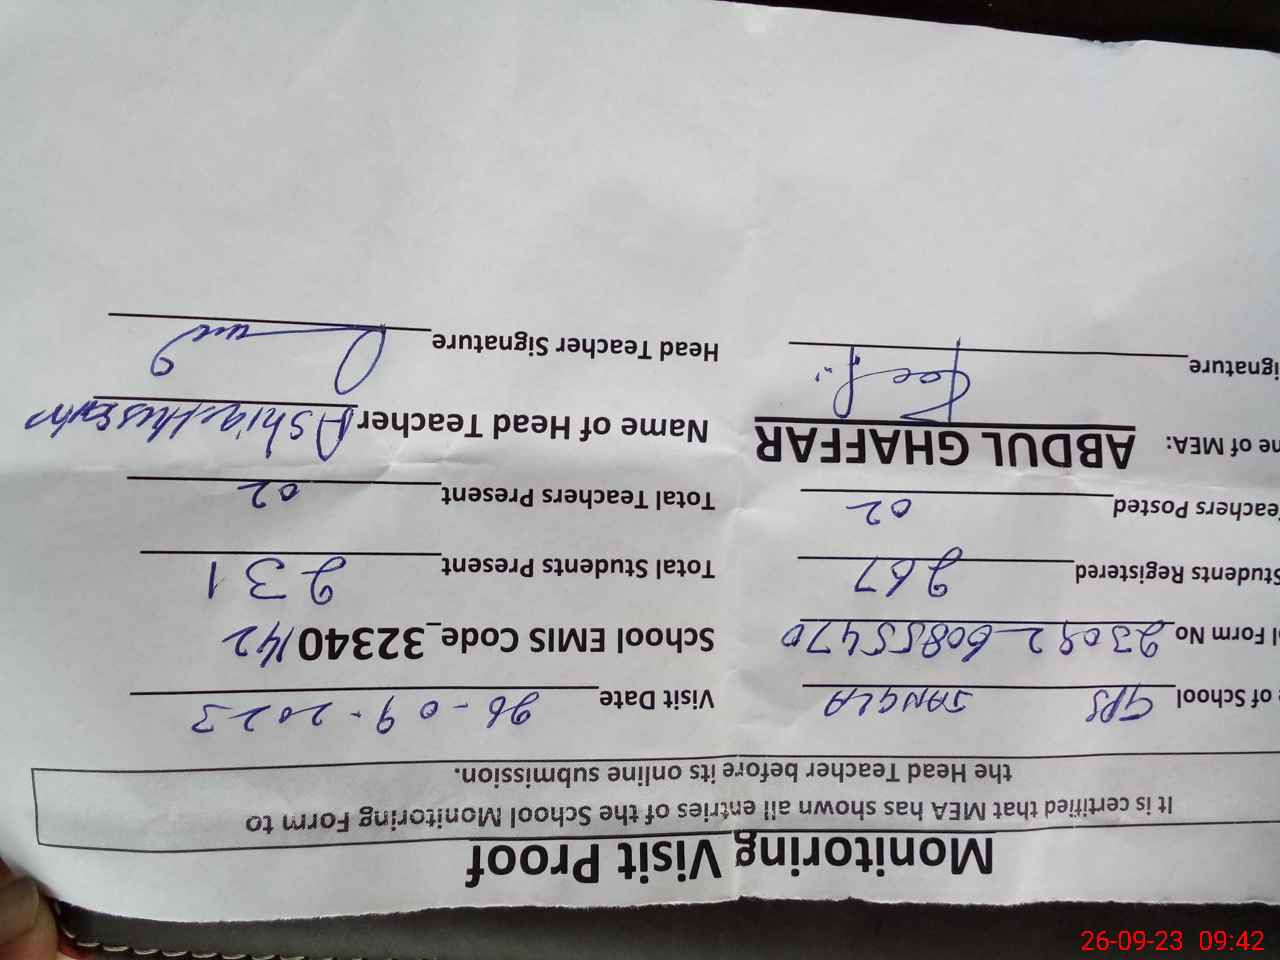 Monitoring Visit Proof
It is certified that MEA has shown all entries of the School Monitoring Form to
the Head Teacher before its online submission.
of School GPS JANGLA Visit Date 26-09-2023
Form No 23092608555470 School EMIS Code_32340142
Students Registered 267 Total Students Present 231
Teachers Posted 02 Total Teachers Present 02
of MEA: ABDUL GHAFFAR Name of Head Teacher Ashiq Hussain
ignature Head Teacher Signature
26-09-23 09:42